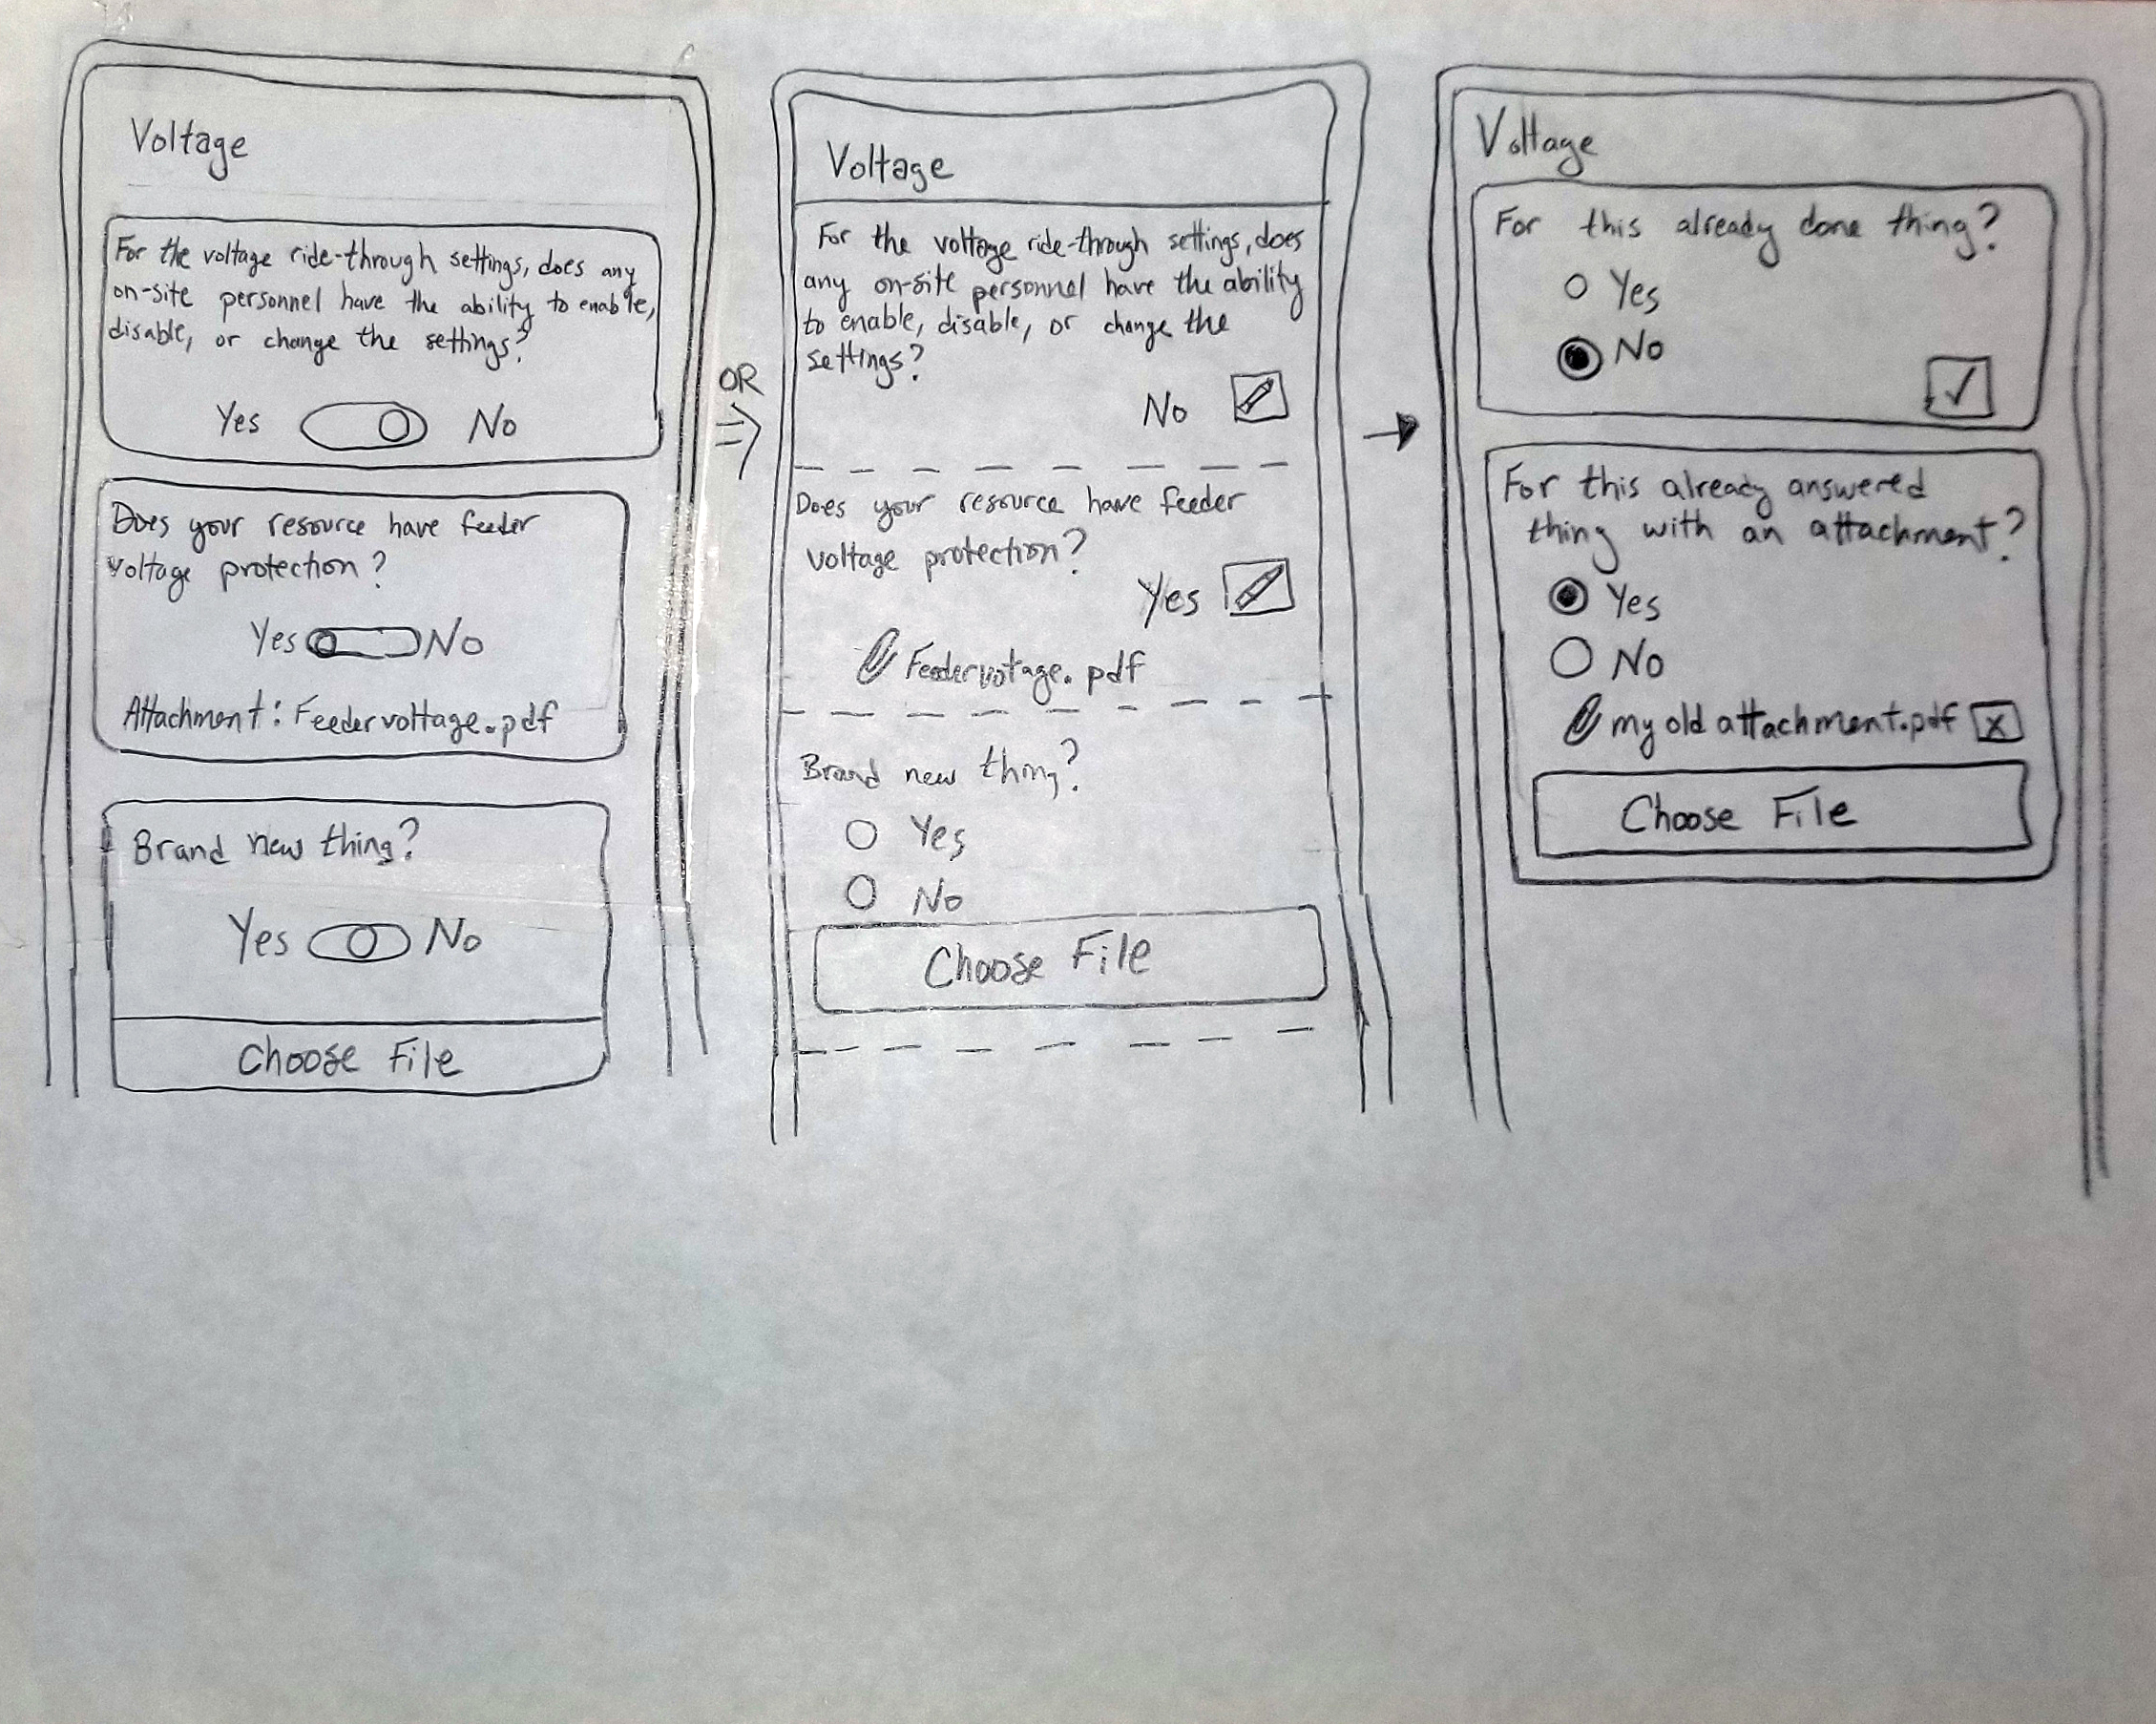 Voltage
For the voltage ride-through settings, does any
on-site personnel have the ability to enable,
disable, or change the settings?
Yes No
Does your resource have feeder
voltage protection?
Yes No
Attachment: Feedervoltage.pdf
Brand new thing?
Yes No
Choose File
OR
Voltage
For the voltage ride-through settings, does
any on-site personnel have the ability
to enable, disable, or change the
settings?
No
Does your resource have feeder
voltage protection?
Yes
Feedervotage.pdf
Brand new thing?
Yes
No
Choose File
Voltage
For this already done thing?
Yes
No
For this already answered
thing with an attachment?
Yes
No
my old attachment.pdf x
Choose File